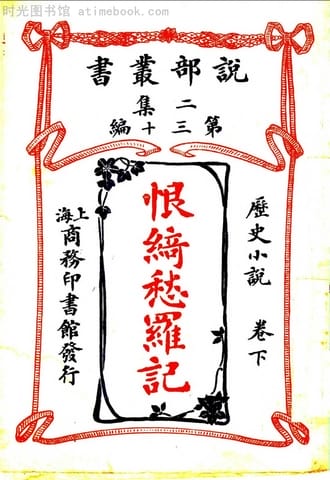 时光图书馆 atimebook.com
說部叢書
第二集三十編
歷史小說 卷下
恨綺愁羅記
上海商務印書館發行